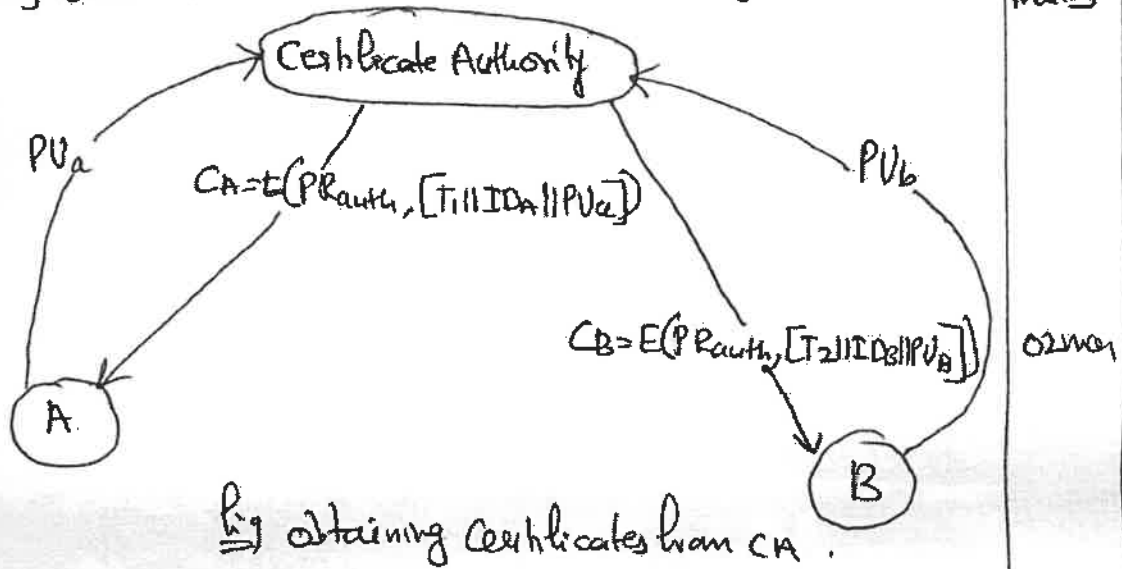 Certificate Authority
PUa
PUb
CA=E(PRauth, [T1||IDA||PUa])
CB=E(PRauth, [T2||IDB||PUB])
A
B
fig obtaining Certificates from CA.